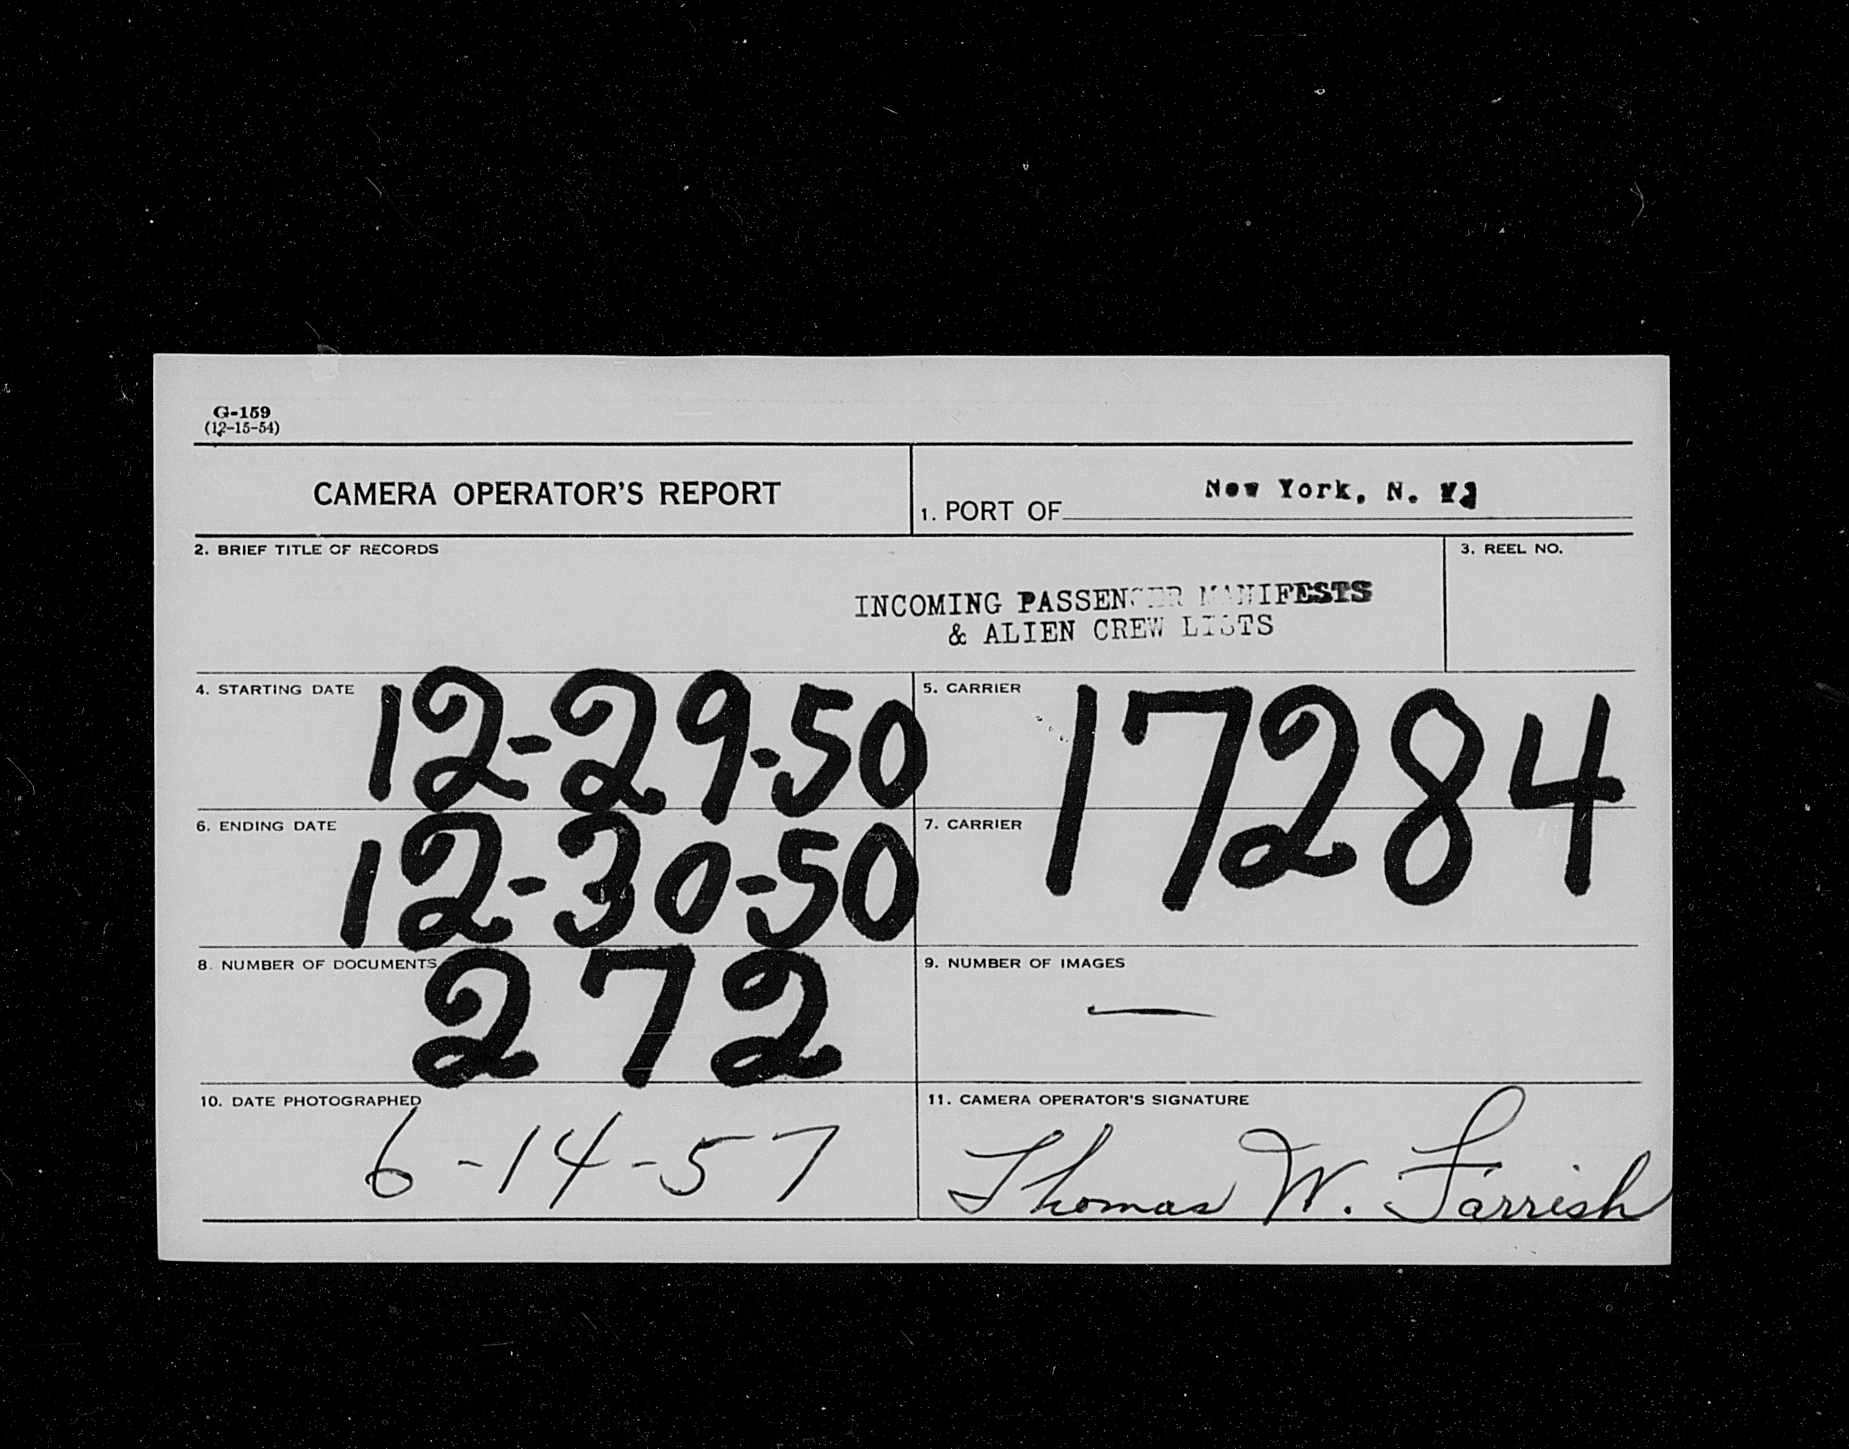 G-159
(12-15-54)
CAMERA OPERATOR'S REPORT
1. PORT OF New York, N. Y.
2. BRIEF TITLE OF RECORDS
INCOMING PASSENGER MANIFESTS
& ALIEN CREW LISTS
3. REEL NO.
4. STARTING DATE 12-29-50
5. CARRIER 17284
6. ENDING DATE 12-30-50
7. CARRIER
8. NUMBER OF DOCUMENTS 272
9. NUMBER OF IMAGES —
10. DATE PHOTOGRAPHED 6-14-57
11. CAMERA OPERATOR'S SIGNATURE Thomas W. Farrish